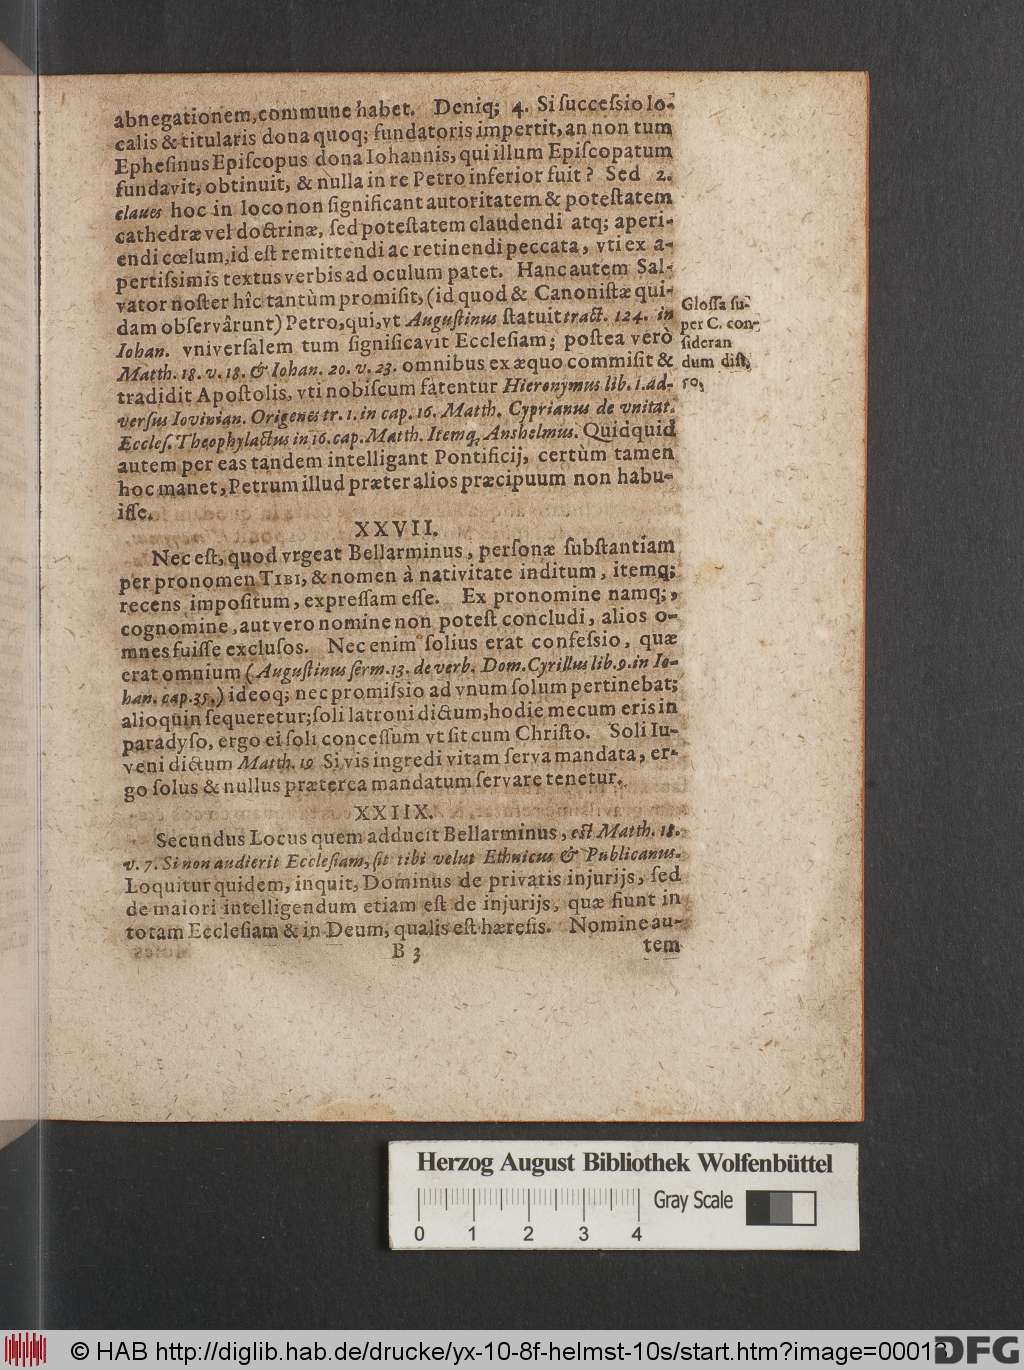 abnegationem, commune habet. Deniq; 4. Si ſucceſsio lo-
calis & titularis dona quoq; fundatoris impertit, an non tum
Epheſinus Epiſcopus dona Iohannis, qui illum Epiſcopatum
fundavit, obtinuit, & nulla in re Petro inferior fuit? Sed 2.
claues hoc in loco non ſignificant autoritatem & poteſtatem
cathedræ vel doctrinæ, ſed poteſtatem claudendi atq; aperi-
endi cœlum, id eſt remittendi ac retinendi peccata, vti ex a-
pertiſsimis textus verbis ad oculum patet. Hanc autem Sal-
vator noſter hîc tantùm promiſit, (id quod & Canoniſtæ qui-
dam obſervârunt) Petro, qui, vt Auguſtinus ſtatuit tract. 124. in
Iohan. vniverſalem tum ſignificavit Eccleſiam; poſtea verò
Matth. 18. v. 18. & Iohan. 20. v. 23. omnibus ex æquo commiſit &
tradidit Apoſtolis, vti nobiſcum fatentur Hieronymus lib. 1. ad-
verſus Iovinian. Origenes tr. 1. in cap. 16. Matth. Cyprianus de vnitat.
Eccleſ. Theophylactus in 16. cap. Matth. Itemq; Anshelmus. Quidquid
autem per eas tandem intelligant Pontificij, certùm tamen
hoc manet, Petrum illud præter alios præcipuum non habu-
iſſe.
Gloſſa ſu-
per C. con-
ſideran
dum diſt.
50.
XXVII.
Nec eſt, quod vrgeat Bellarminus, perſonæ ſubſtantiam
per pronomen TIBI, & nomen à nativitate inditum, itemq;
recens impoſitum, expreſſam eſſe. Ex pronomine namq;,
cognomine, aut vero nomine non poteſt concludi, alios o-
mnes fuiſſe excluſos. Nec enim ſolius erat confeſsio, quæ
erat omnium (Auguſtinus ſerm. 13. de verb. Dom. Cyrillus lib. 9. in Io-
han. cap. 35.) ideoq; nec promiſsio ad vnum ſolum pertinebat;
alioquin ſequeretur; ſoli latroni dictum, hodie mecum eris in
paradyſo, ergo ei ſoli conceſſum vt ſit cum Chriſto. Soli Iu-
veni dictum Matth. 19 Si vis ingredi vitam ſerva mandata, er-
go ſolus & nullus præterea mandatum ſervare tenetur.
XXIIX.
Secundus Locus quem adducit Bellarminus, eſt Matth. 18.
v. 7. Si non audierit Eccleſiam, ſit tibi velut Ethnicus & Publicanus.
Loquitur quidem, inquit, Dominus de privatis injurijs, ſed
de maiori intelligendum etiam eſt de injurijs, quæ fiunt in
totam Eccleſiam & in Deum, qualis eſt hæreſis. Nomine au-
B 3 tem
Herzog August Bibliothek Wolfenbüttel
Gray Scale
0 1 2 3 4
© HAB http://diglib.hab.de/drucke/yx-10-8f-helmst-10s/start.htm?image=00013
DFG